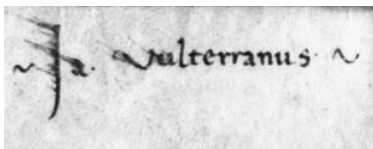 ~ Ja. Vulterranus ~